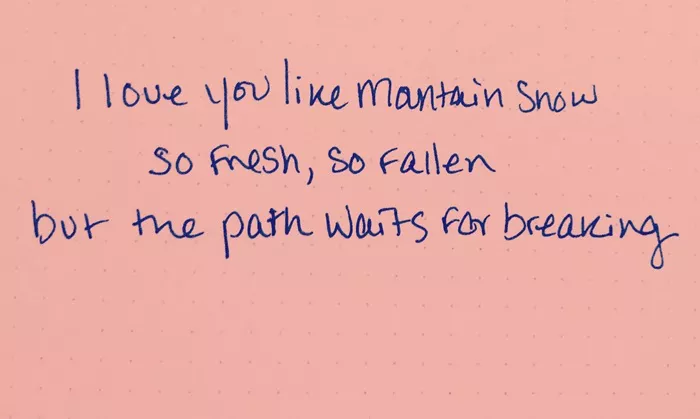 I love you like Mantain Snow
so fresh, so fallen
but the path waits for breaking